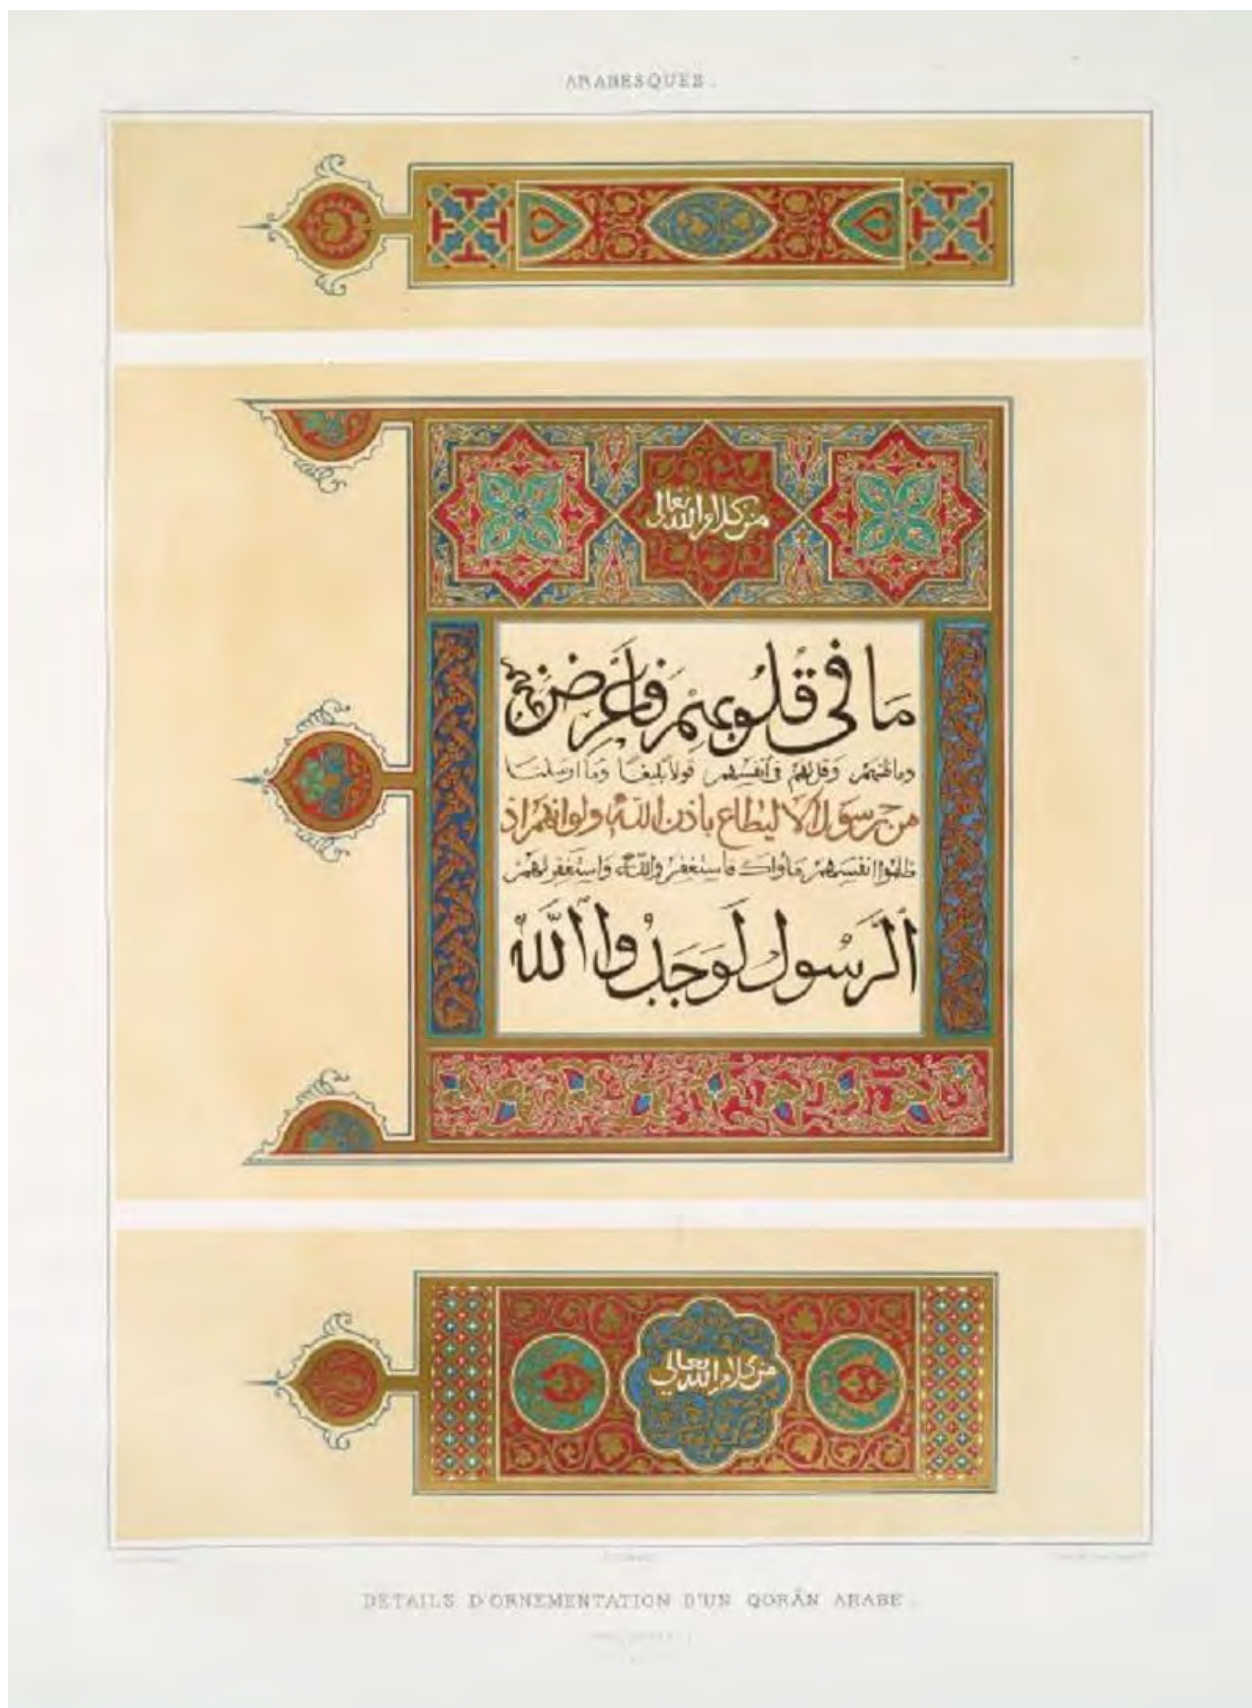 ARABESQUES.
من كلام الله تعالى
مَا فى قُلُوبِهِمْ فَأَعْرِضْ
وعظهم وقل لهم فى انفسهم قولا بليغا وما ارسلنا
من رسول الا ليطاع باذن الله ولو انهم اذ
ظلموا انفسهم جاؤك فاستغفروا الله واستغفر لهم
الرَّسُول لَوَجَدُوا اللَّه
من كلام الله تعالى
DÉTAILS D'ORNEMENTATION D'UN QORÂN ARABE.